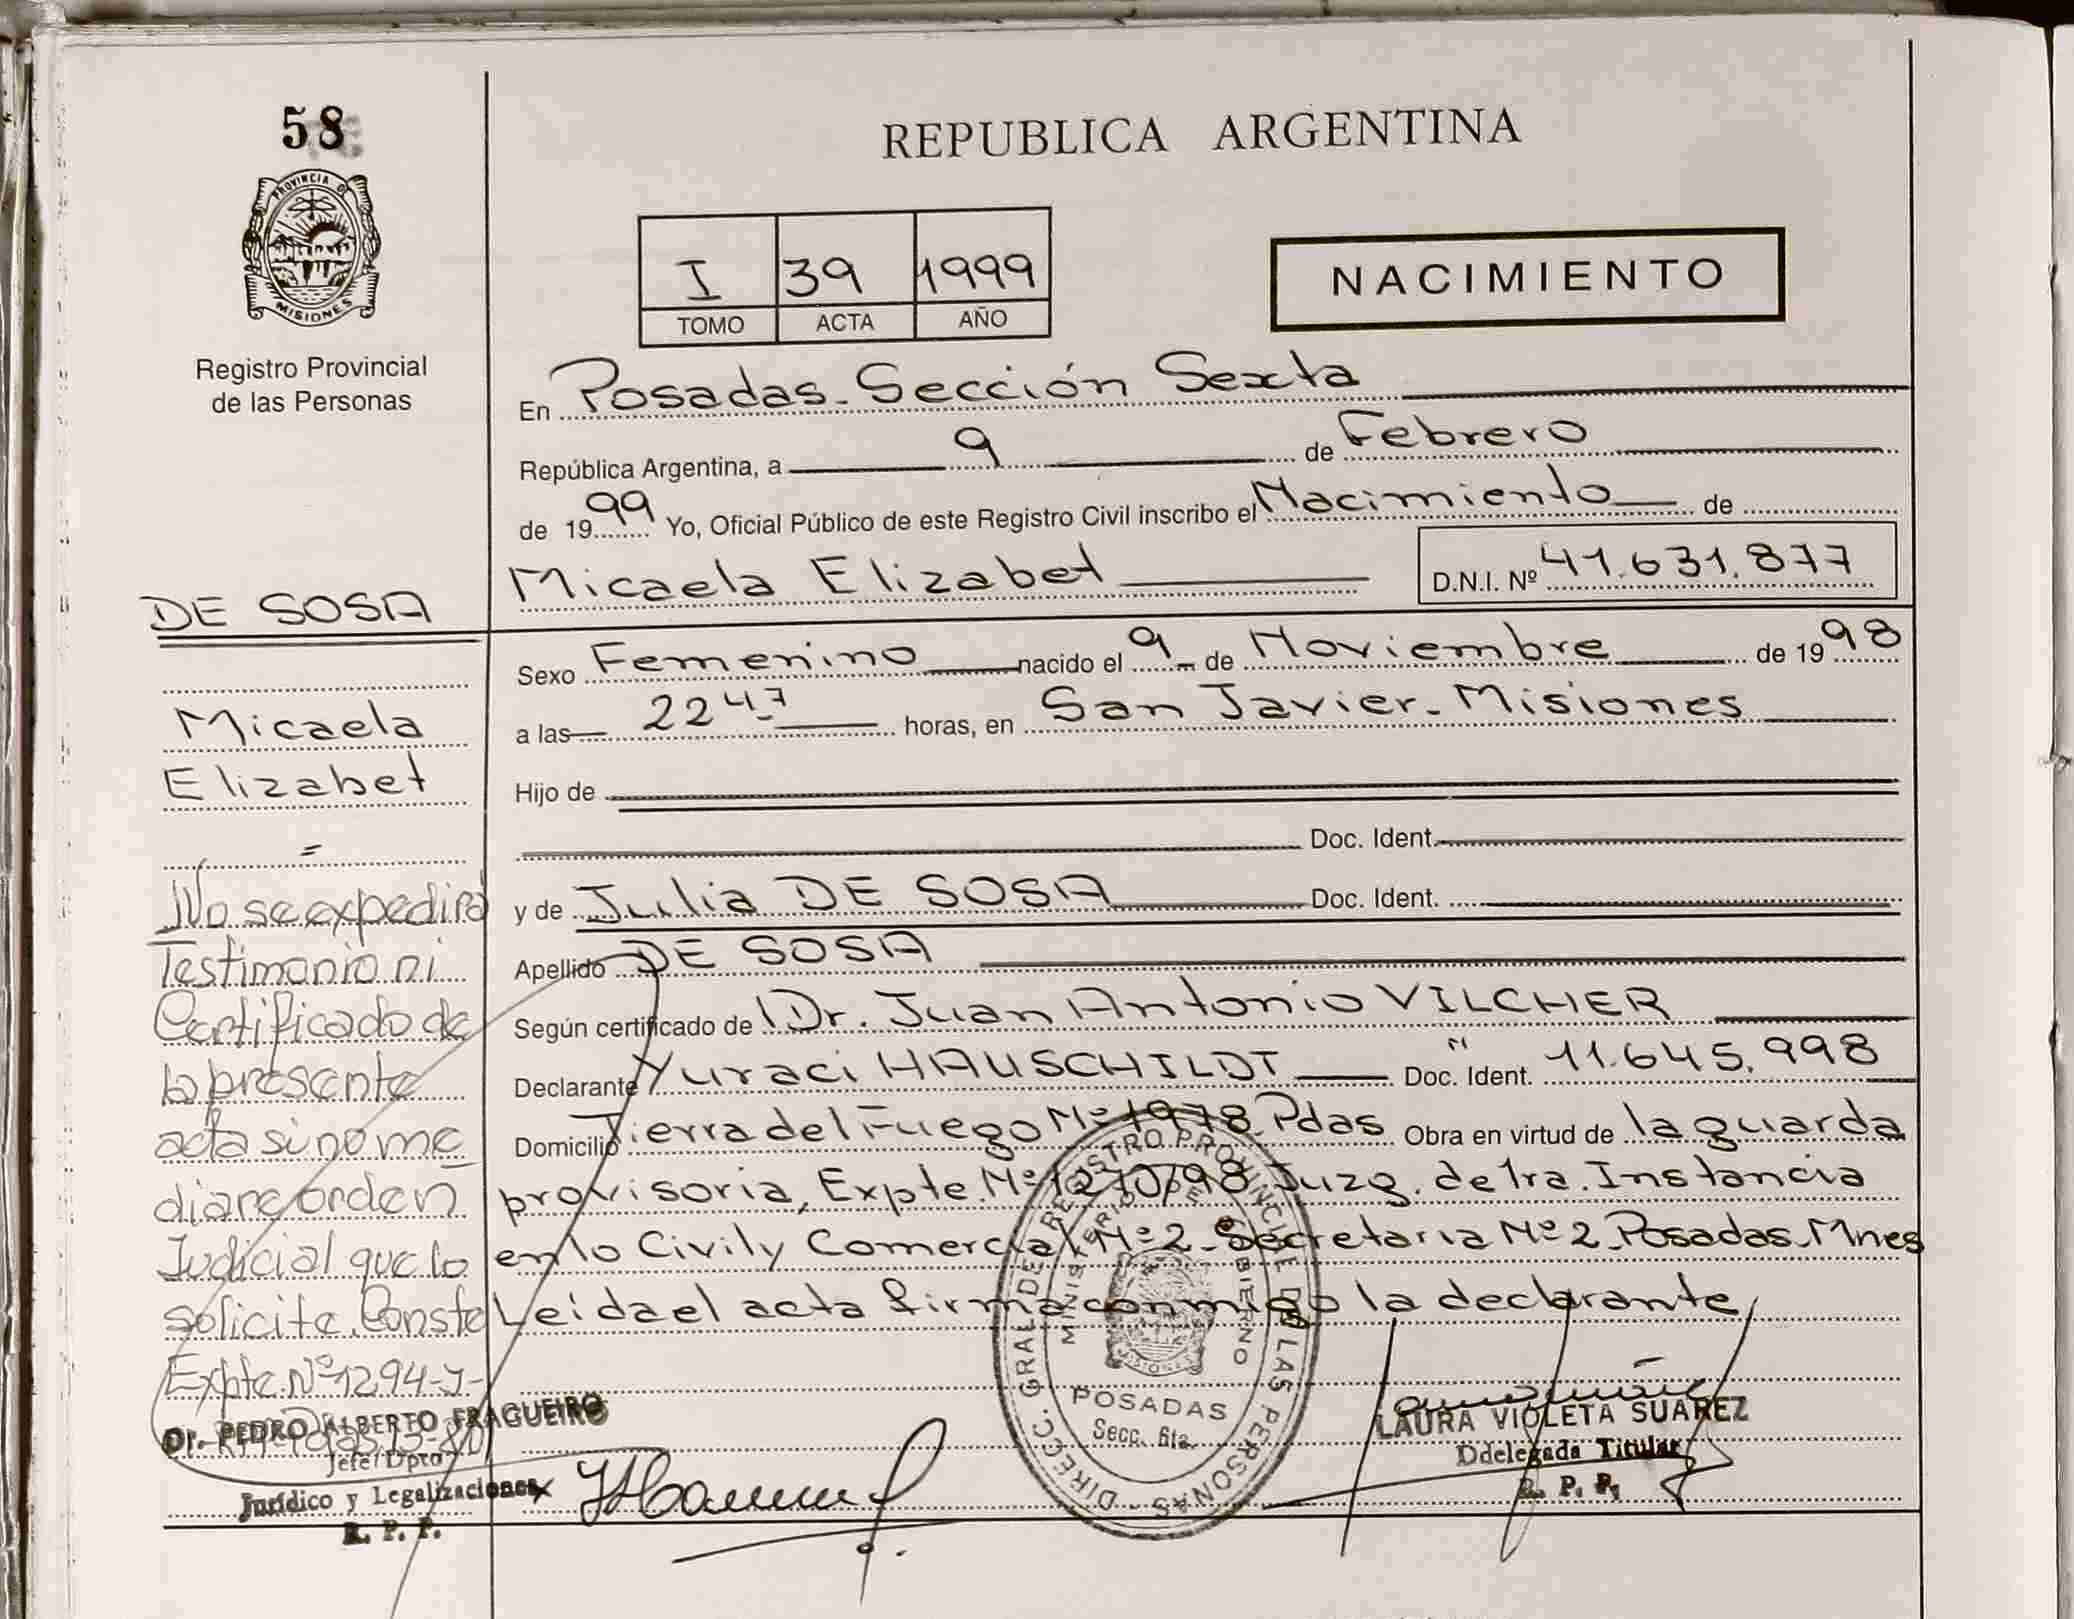 58
PROVINCIA D
MISIONES
Registro Provincial
de las Personas
REPUBLICA ARGENTINA
I 39 1999
TOMO ACTA AÑO
NACIMIENTO
En Posadas - Sección Sexta
República Argentina, a 9 de Febrero
de 1999 Yo, Oficial Público de este Registro Civil inscribo el Nacimiento de
Micaela Elizabet D.N.I. Nº 41.631.877
Sexo Femenino nacido el 9 de Noviembre de 1998
a las 22 47 horas, en San Javier - Misiones
Hijo de
Doc. Ident.
y de Julia DE SOSA Doc. Ident.
Apellido DE SOSA
Según certificado de Dr. Juan Antonio VILCHER
Declarante Yuraci HAUSCHILDT Doc. Ident. 11.645.998
Domicilio Tierra del Fuego Nº 1978 Pdas Obra en virtud de la guarda
provisoria, Expte. Nº 1270/98 Juzg. de 1ra. Instancia
en lo Civil y Comercial Nº 2 - Secretaria Nº 2 - Posadas - Mnes
Leida el acta firma conmigo la declarante,
DE SOSA
Micaela
Elizabet
No se expedirá
Testimonio ni
Certificado de
la presente
acta si no me
diare orden
Judicial que lo
solicite. Conste
Expte. Nº 1294-J-
Dr. PEDRO ALBERTO FRAGUEIRO
Jefe Dpto
Jurídico y Legalizaciones
R. P. P.
DIRECC. GRAL DE REGISTRO PROVINCIAL DE LAS PERSONAS
MINISTERIO DE GOBIERNO
MISIONES
POSADAS
Secc. 6ta.
LAURA VIOLETA SUAREZ
Ddelegada Titular
R. P. P.